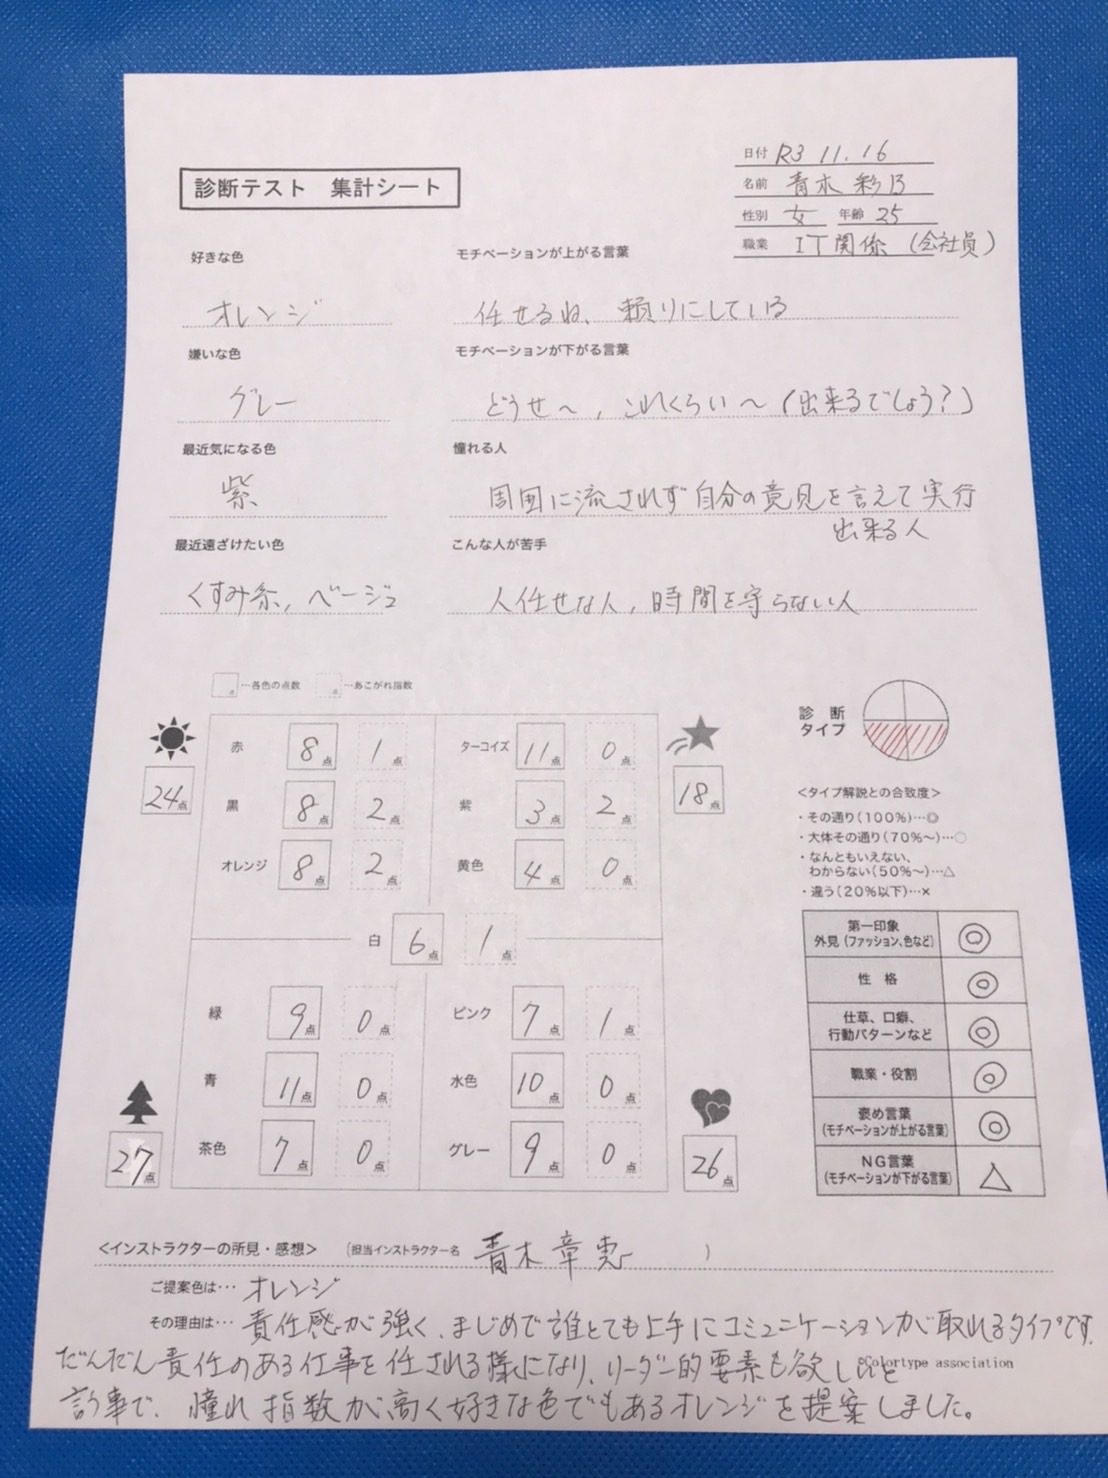 日付 R3 11.16
診断テスト 集計シート
名前 青木 彩乃
性別 女 年齢 25
職業 IT関係（会社員）
好きな色 モチベーションが上がる言葉
オレンジ 任せるね、頼りにしている
嫌いな色 モチベーションが下がる言葉
グレー どうせ～，これくらい～（出来るでしょう？）
最近気になる色 憧れる人
紫 周囲に流されず自分の意見を言えて実行
出来る人
最近遠ざけたい色 こんな人が苦手
くすみ系，ベージュ 人任せな人，時間を守らない人
点 …各色の点数 点 …あこがれ指数
診断
タイプ
赤 8点 1点 ターコイズ 11点 0点
24点 黒 8点 2点 紫 3点 2点 18点
オレンジ 8点 2点 黄色 4点 0点
白 6点 1点
緑 9点 0点 ピンク 7点 1点
青 11点 0点 水色 10点 0点
茶色 7点 0点 グレー 9点 0点
27点 26点
＜タイプ解説との合致度＞
・その通り（100%）…◎
・大体その通り（70%～）…○
・なんともいえない、
わからない（50%～）…△
・違う（20%以下）…×
第一印象
外見（ファッション、色など） ◎
性格 ◎
仕草、口癖、
行動パターンなど ◎
職業・役割 ◎
褒め言葉
（モチベーションが上がる言葉） ◎
NG言葉
（モチベーションが下がる言葉） △
＜インストラクターの所見・感想＞ （担当インストラクター名 青木章恵 ）
ご提案色は… オレンジ
その理由は… 責任感が強く、まじめで誰とでも上手にコミュニケーションが取れるタイプです。
だんだん責任のある仕事を任される様になり、リーダー的要素も欲しいと
©Colortype association
言う事で、憧れ指数が高く好きな色でもあるオレンジを提案しました。